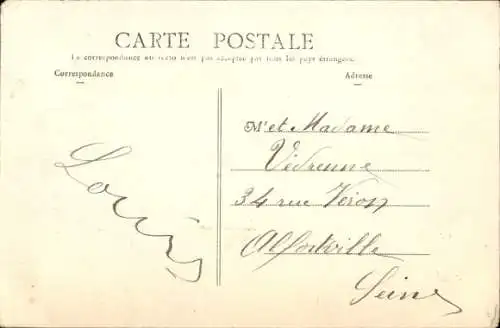 CARTE POSTALE
La correspondance au recto n'est pas acceptée par tous les pays étrangers.
Correspondance
Adresse
Louis
Mr et Madame
Védrenne
34 rue Véron
Alfortville
Seine